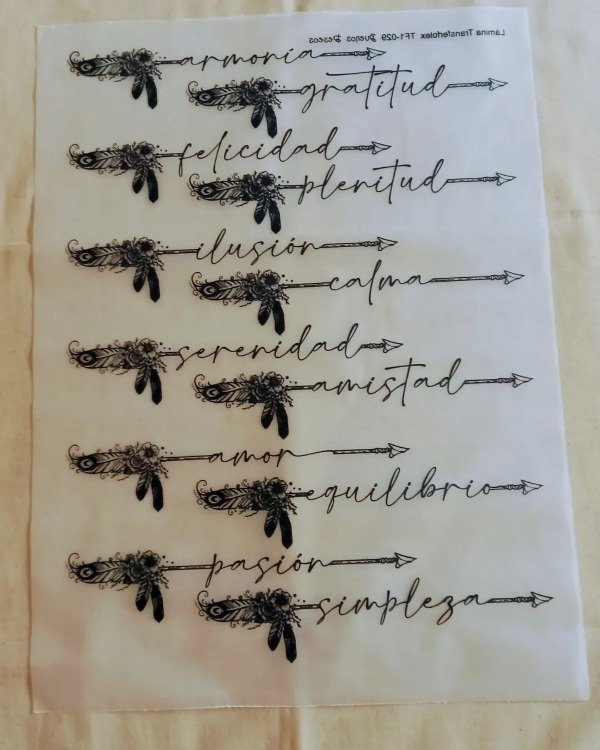 Lámina Transferfolex TF1-029 Buenos Deseos
armonía
gratitud
felicidad
plenitud
ilusión
calma
serenidad
amistad
amor
equilibrio
pasión
simpleza